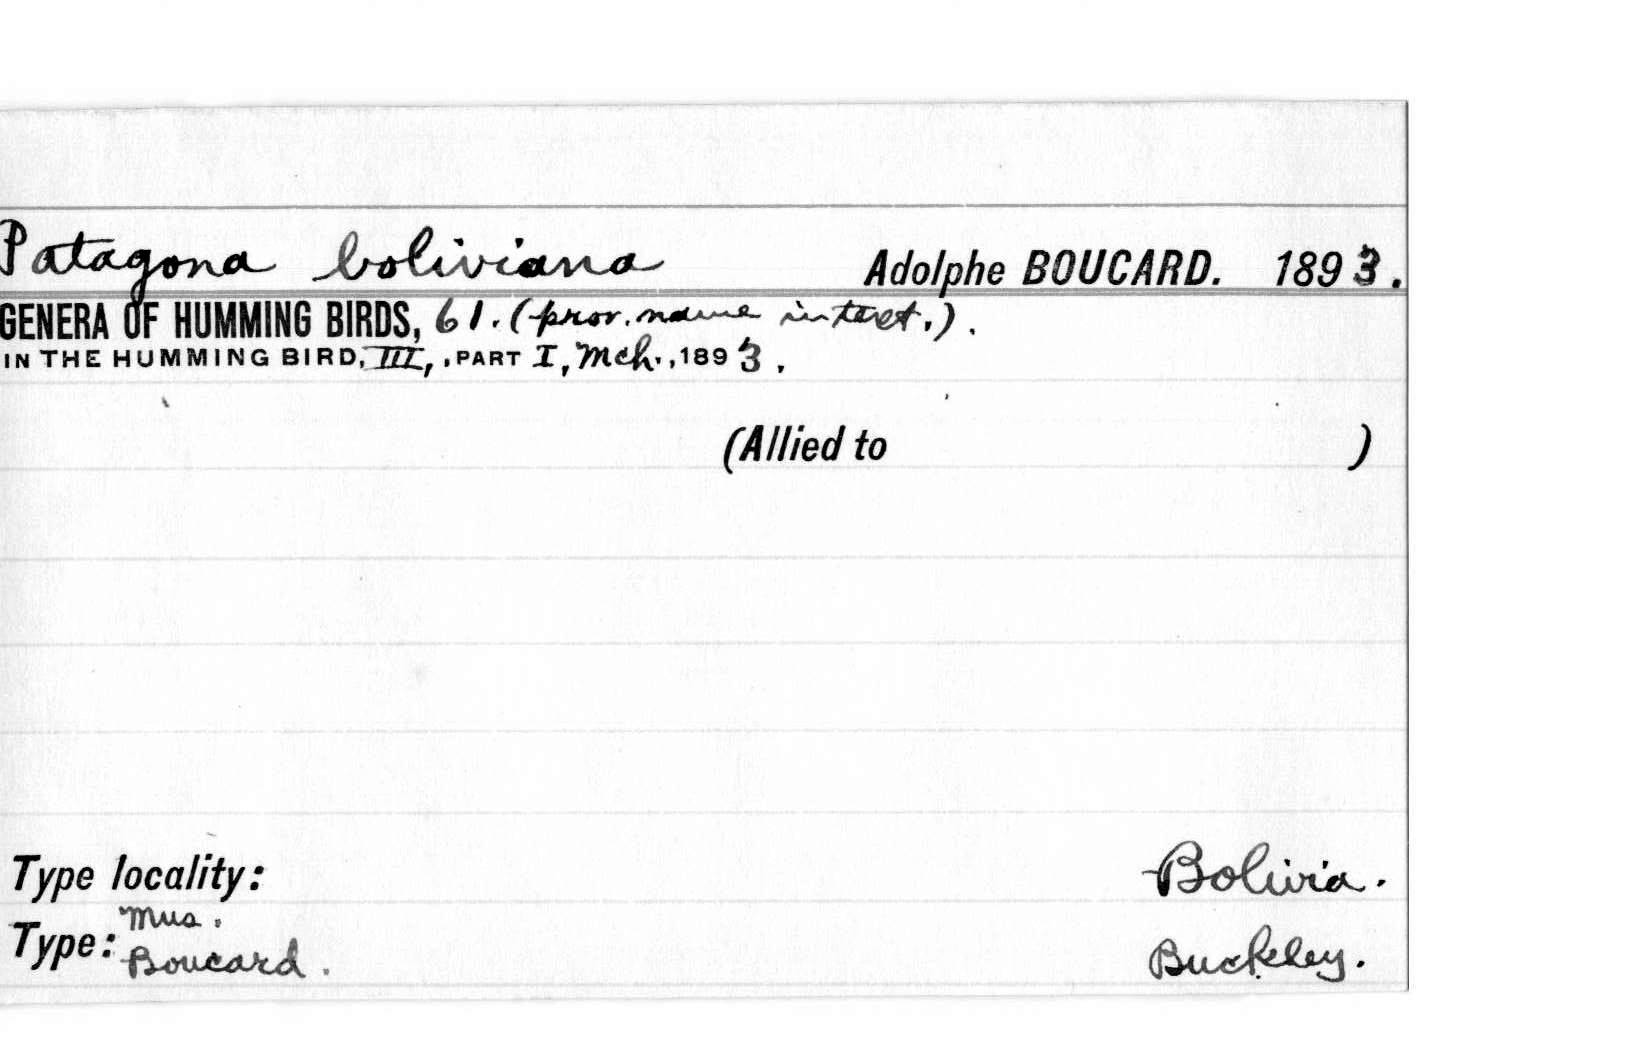 Patagona boliviana Adolphe BOUCARD. 1893.
GENERA OF HUMMING BIRDS, 61. (prov. name in text.).
IN THE HUMMING BIRD, III, , PART I, Mch., 1893.
(Allied to )
Type locality: Bolivia.
Type: Mus. Boucard. Buckeley.